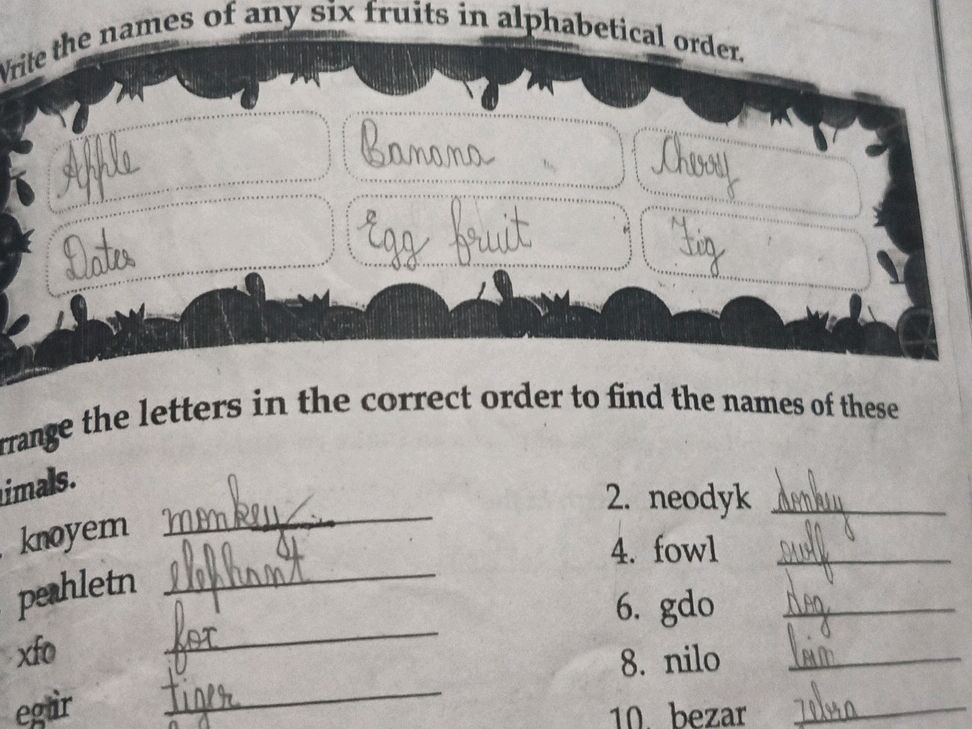 Write the names of any six fruits in alphabetical order.
Apple Banana Cherry
Dates Egg fruit Fig
rrange the letters in the correct order to find the names of these
imals.
knoyem monkey 2. neodyk donkey
peahletn elephant 4. fowl
xfo fox 6. gdo dog
egtir tiger 8. nilo
10. bezar zebra